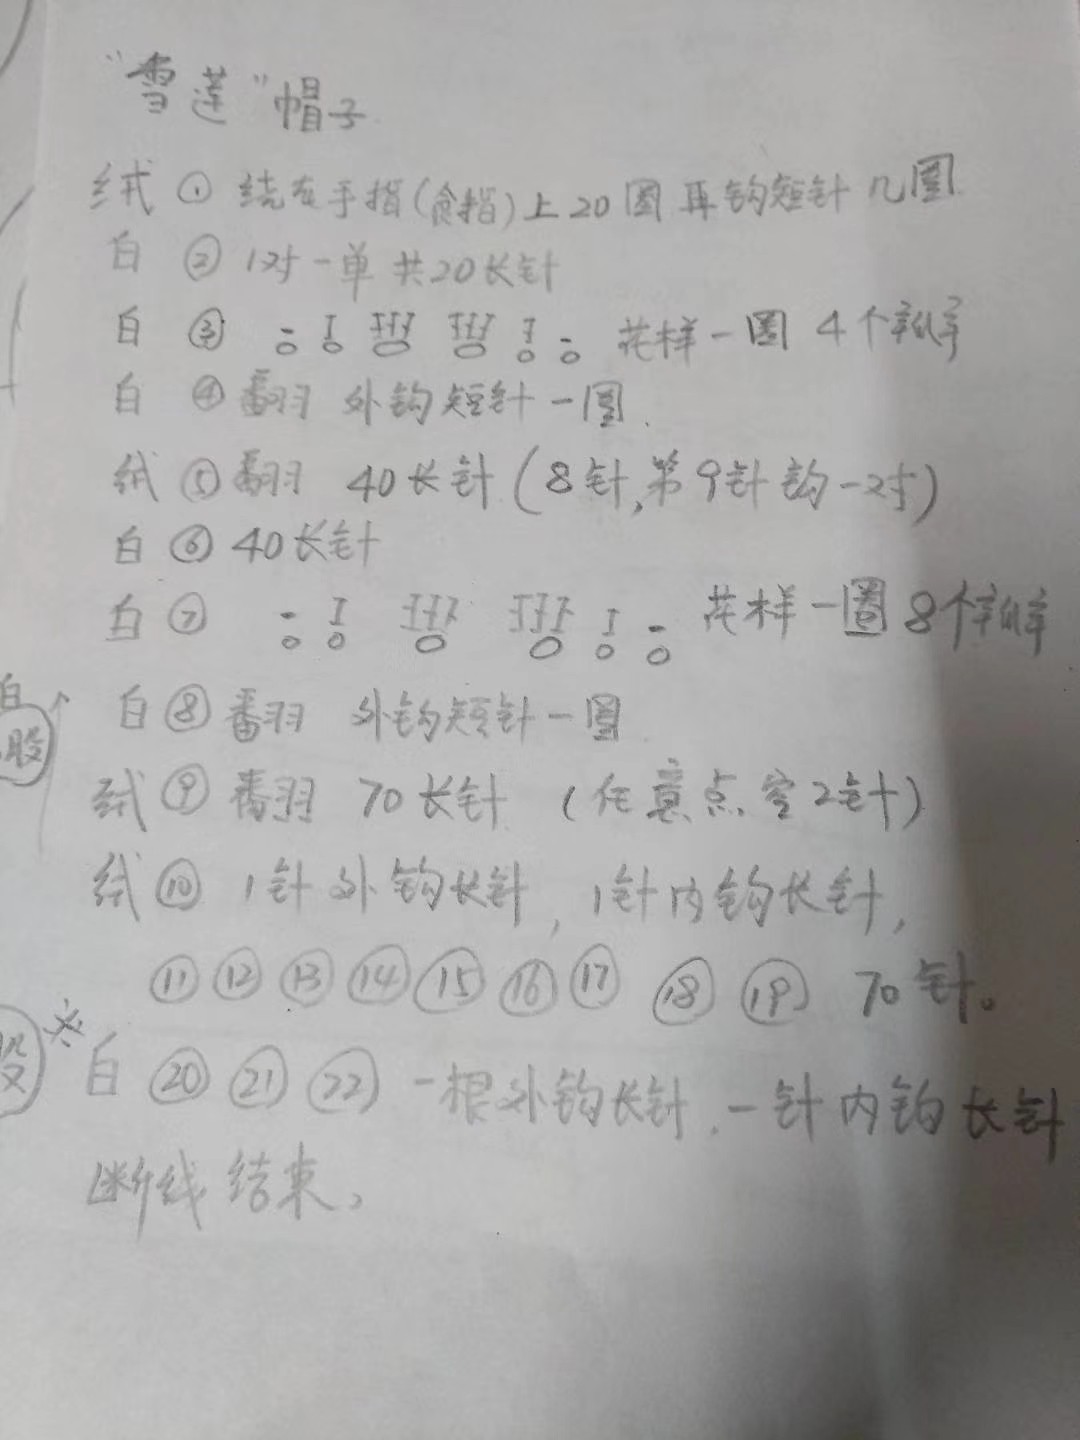 "雪莲"帽子
绒 ① 绕在手指(食指)上20圈再钩短针几圈
白 ② 1对一单共20长针
白 ③ 花样一圈 4个瓣
白 ④ 翻羽 外钩短针一圈.
绒 ⑤ 翻羽 40长针(8针,第9针钩一对)
白 ⑥ 40长针
白 ⑦ 花样一圈 8个瓣
白 ⑧ 番羽 外钩短针一圈
绒 ⑨ 番羽 70长针 (任意点空2针)
绒 ⑩ 1针外钩长针,1针内钩长针,
⑪ ⑫ ⑬ ⑭ ⑮ ⑯ ⑰ ⑱ ⑲ 70针。
白 ⑳ ㉑ ㉒ 一根外钩长针.一针内钩长针
断线结束,
白
股
股